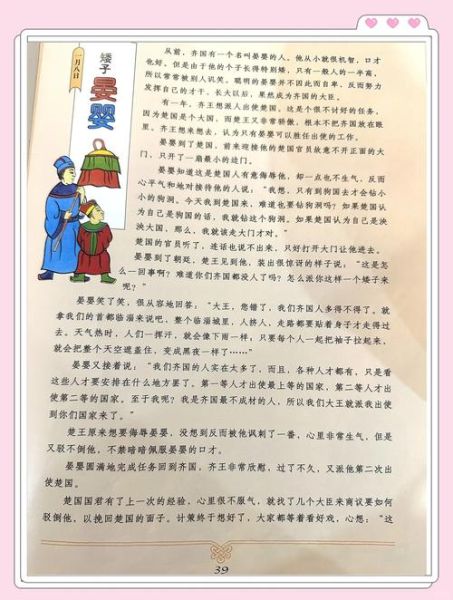 一月八日
矮子
晏婴
从前，齐国有一个名叫晏婴的人。他从小就很机智，口才
很好。但是由于他的个子长得特别矮，只有一般人的一半高，
所以常常被别人讥笑。聪明的晏婴并不因此而自卑，反而努力
发挥自己的才干。长大以后，果然成为齐国的大臣。
有一年，齐王想派人出使楚国。这是个很不讨好的任务，
因为楚国是个大国，而楚王又非常骄傲，根本不把齐国放在眼
里。齐王想来想去，认为只有晏婴可以胜任出使的工作。
晏婴到了楚国，前来迎接他的楚国官员故意不开正面的大
门，只开了一扇最小的边门。
晏婴知道这是楚国人有意侮辱他，却一点也不生气，反而
心平气和地对接待他的人说：“我想，只有到狗国去才会钻小
小的狗洞。今天我到楚国来，难道也要钻狗洞吗？如果楚国认
为自己是狗国的话，我就钻这个狗洞。如果楚国认为自己是泱
泱大国，那么，我就该走大门才对。”
楚国的官员听了，连话也说不出来，只好打开大门让他进去。
晏婴到了朝廷，楚王见到他，装出很惊讶的样子说：“这是怎
么一回事啊？难道你们齐国都没人了吗？怎么派你这样一个矮子来
呢？”
晏婴笑了笑，很从容地回答：“大王，您错了，我们齐国人多得不得了。就
拿我们的首都临淄来说吧，整个临淄城里，人挤人，走路都要贴着身子才走得过
去。天气热时，人们一挥汗，就会像下雨一样，只要每个人一起把袖子拉起来，
就会把整个天空遮盖住，变成黑夜一样了……”
晏婴又接着说：“我们齐国的人实在太多了，而且，各种人才都有，只是看
这些人才要安排在什么地方罢了。第一等人才出使最上等的国家，第二等人才出
使第二等的国家。至于我呢？我是齐国最不成材的人，所以我们大王就派我出使
到你们国家来了。”
楚王原来想要侮辱晏婴，没想到反而被他讽刺了一番，心里非常生气，但是
又驳不倒他，不禁暗暗佩服晏婴的口才。
晏婴圆满地完成任务回到齐国，齐王非常欣慰，过了不久，又派他第二次出
使楚国。
楚国国君有了上一次的经验，心里很不服气，就找了几个大臣来商议要如何
驳倒他，以挽回楚国的面子。计策终于想好了，大家都等着看好戏，心想：“这
39